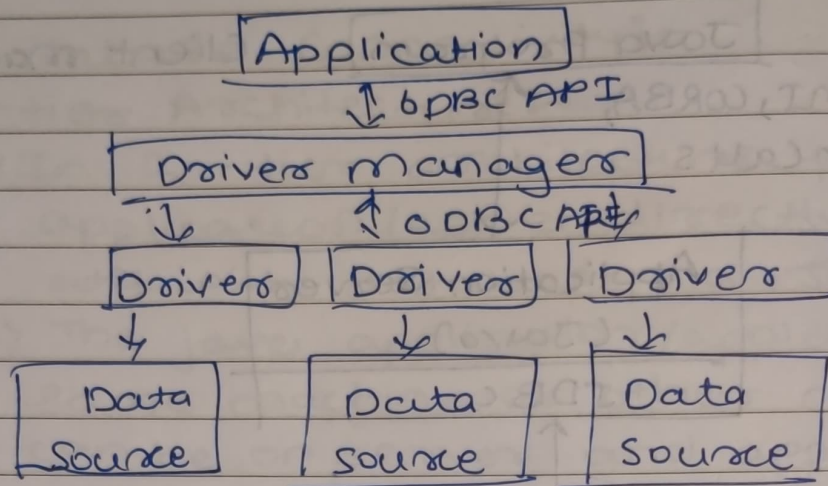 Application
ODBC API
Driver manager
ODBC API
Driver Driver Driver
Data Data Data
Source Source Source